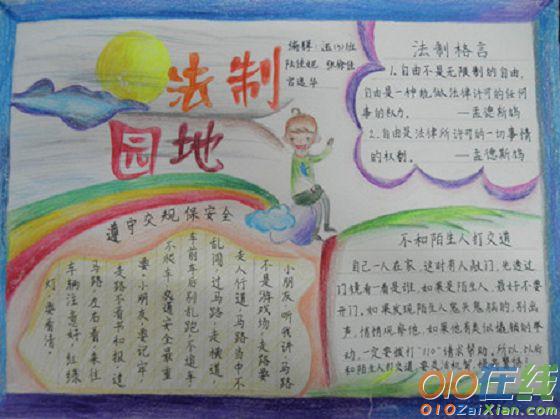 法制
园地
法制格言
1.自由不是无限制的自由,
自由是一种能做法律许可的任何
事的权力。 ——孟德斯鸠
2.自由是法律所许可的一切事情
的权利。 ——孟德斯鸠
遵守交规保安全
小朋友,听我讲,马路
不是游戏场,走路要
走人行道,马路当中不
乱闯,过马路,走横道
车前车后别乱跑,不追车
不爬车,交通安全最重
要,小朋友,要记牢
走路不看书和报,过
马路,左右看,来往
车辆注意好,红绿
灯,要看清。
不和陌生人打交道
自己一人在家,这时有人敲门,先透过
门镜看一看是谁,如果是陌生人,最好不要
开门,如果发现陌生人鬼头鬼脑的,别出
声,悄悄观察他,如果他有类似撬锁的举
动,一定要拨打"110"请求帮助。所以,以后
和陌生人打交道,要灵活机智
010在线
010ZaiXian.com